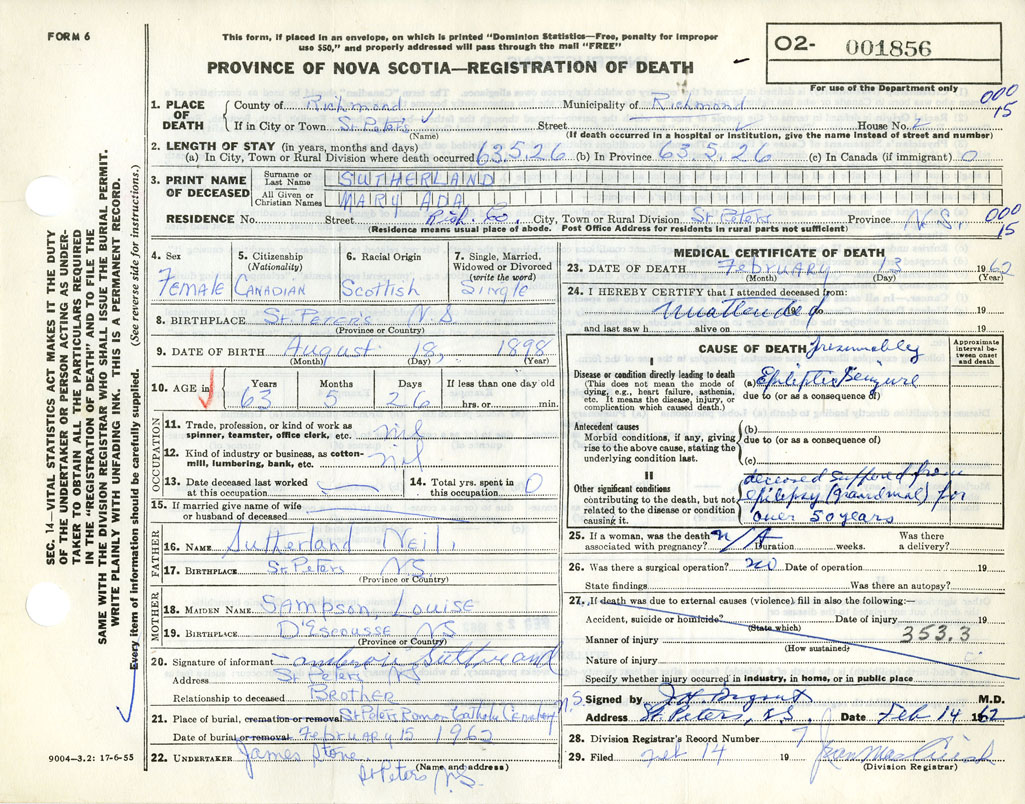 FORM 6
This form, if placed in an envelope, on which is printed "Dominion Statistics—Free, penalty for improper
use $50," and properly addressed will pass through the mail "FREE"
PROVINCE OF NOVA SCOTIA—REGISTRATION OF DEATH
02- 001856
For use of the Department only
000
15
1. PLACE OF DEATH { County of Richmond Municipality of Richmond
If in City or Town St. Peter's Street House No.
(Name) (If death occurred in a hospital or institution, give the name instead of street and number)
2. LENGTH OF STAY (in years, months and days)
(a) In City, Town or Rural Division where death occurred 63.5.26 (b) In Province 63.5.26 (c) In Canada (if immigrant) 0
3. PRINT NAME OF DECEASED { Surname or Last Name SUTHERLAND
All Given or Christian Names MARY ADA
RESIDENCE No. Street Rich. Co. City, Town or Rural Division St Peters Province N.S. 000
15
(Residence means usual place of abode. Post Office Address for residents in rural parts not sufficient)
4. Sex
Female
5. Citizenship
(Nationality)
Canadian
6. Racial Origin
Scottish
7. Single, Married,
Widowed or Divorced
(write the word)
Single
8. BIRTHPLACE St. Peter's N.S
(Province or Country)
9. DATE OF BIRTH August 18, 1898
(Month) (Day) (Year)
10. AGE in { Years Months Days If less than one day old
63 5 26 hrs. or min.
OCCUPATION
11. Trade, profession, or kind of work as
spinner, teamster, office clerk, etc. nil
12. Kind of industry or business, as cotton-
mill, lumbering, bank, etc. nil
13. Date deceased last worked
at this occupation
14. Total yrs. spent in
this occupation 0
15. If married give name of wife
or husband of deceased
FATHER
16. NAME Sutherland Neil,
17. BIRTHPLACE St. Peters N.S.
(Province or Country)
MOTHER
18. MAIDEN NAME Sampson, Louise
19. BIRTHPLACE D'Escousse N.S
(Province or Country)
20. Signature of informant Sutherland
Address St Peters NS
Relationship to deceased Brother
21. Place of burial, cremation or removal St Peter Roman Catholic Cemetery N.S.
Date of burial or removal February 15 1962
22. UNDERTAKER James Stone
(Name and address)
St Peters N.S.
MEDICAL CERTIFICATE OF DEATH
23. DATE OF DEATH February 13 1962
(Month) (Day) (Year)
24. I HEREBY CERTIFY that I attended deceased from:
Unattended 19
and last saw h alive on 19
CAUSE OF DEATH Presumably
Approximate
interval be-
tween onset
and death
I
Disease or condition directly leading to death
(This does not mean the mode of
dying, e.g., heart failure, asthenia,
etc. It means the disease, injury, or
complication which caused death.)
(a) Epileptic Seizure
due to (or as a consequence of)
Antecedent causes
Morbid conditions, if any, giving
rise to the above cause, stating the
underlying condition last.
(b)
due to (or as a consequence of)
(c)
II
Other significant conditions
contributing to the death, but not
related to the disease or condition
causing it.
deceased suffered from
epilepsy (grandmal) for
over 50 years
25. If a woman, was the death
associated with pregnancy? N/A Duration weeks. Was there
a delivery?
26. Was there a surgical operation? no Date of operation 19
State findings Was there an autopsy?
27. If death was due to external causes (violence) fill in also the following:—
Accident, suicide or homicide? Date of injury 19
(State which)
353.3
Manner of injury
(How sustained)
Nature of injury
Specify whether injury occurred in industry, in home, or in public place
Signed by M.D.
Address St. Peters, N.S. Date Feb 14 1962
28. Division Registrar's Record Number 7
29. Filed Feb 14 19
(Division Registrar)
SEC. 14—VITAL STATISTICS ACT MAKES IT THE DUTY
OF THE UNDERTAKER OR PERSON ACTING AS UNDER-
TAKER TO OBTAIN ALL THE PARTICULARS REQUIRED
IN THE "REGISTRATION OF DEATH" AND TO FILE THE
SAME WITH THE DIVISION REGISTRAR WHO SHALL ISSUE THE BURIAL PERMIT.
WRITE PLAINLY WITH UNFADING INK. THIS IS A PERMANENT RECORD.
Every item of information should be carefully supplied. (See reverse side for instructions.)
9004—3.2: 17-6-55